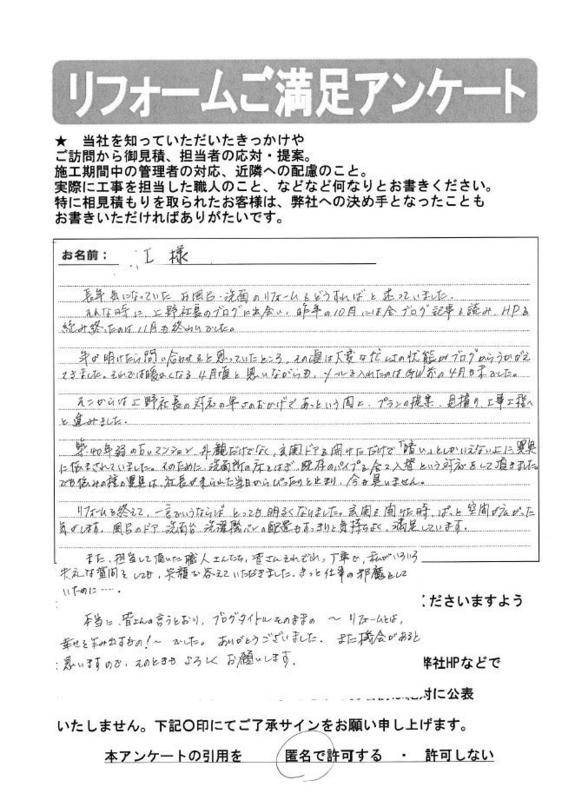 リフォームご満足アンケート
★　当社を知っていただいたきっかけや
ご訪問から御見積、担当者の応対・提案。
施工期間中の管理者の対応、近隣への配慮のこと。
実際に工事を担当した職人のこと、などなど何なりとお書きください。
特に相見積もりを取られたお客様は、弊社への決め手となったことも
お書きいただければありがたいです。
お名前： I 様
長年気になっていた お風呂・洗面のリフォームをどうすればと迷っていました。
そんな時に、上野社長のブログに出会い、昨年の10月には全ブログ記事を読み、HPを
読み終ったのは11月も終わりでした。
年が明けたら問い合わせをと思っていたところ、その頃は大変な忙しさの状態がブログからうかがえ
てきました。それでは暖かくなる4月頃と思いながらも、メールを入れたのは の4月 でした。
そこからは上野社長の対応の早さのおかげで あっという間に、プランの提案、見積り、工事工程へ
と進みました。
築40年弱の古いマンション、外観だけでなく、玄関ドアを開けただけで「暗い」としかいえない上に異臭
に悩まされていました。そのために、洗面所の床をはぎ、既存のパイプを全て入替という対応をして頂きました。
でも悩みの種の異臭は、社長が来られた当日からぴったりと止まり、今も臭いません。
リフォームを終えて、一言でいうならば とっても明るくなりました。玄関を開けた時、ぱっと空間が広がった
気がします。風呂のドア、洗面台、洗濯機パンの配置もすっきりと気持ちよく、満足しています。
また、担当して頂いた職人さんたち、皆さんそれぞれ、丁寧で、私がいろいろ
失礼な質問をしても、笑顔で答えていただきました。きっと仕事の邪魔をして
いたのに……。
くださいますよう
本当に、皆さんの言うとおり、ブログタイトルそのままの ～リフォームとは、
幸せを生み出すもの！～ でした。ありがとうございました。また機会があると
思いますので、そのときも よろしくお願いします。
弊社HPなどで
対に公表
いたしません。下記〇印にてご了承サインをお願い申し上げます。
本アンケートの引用を　　匿名で許可する　・　許可しない